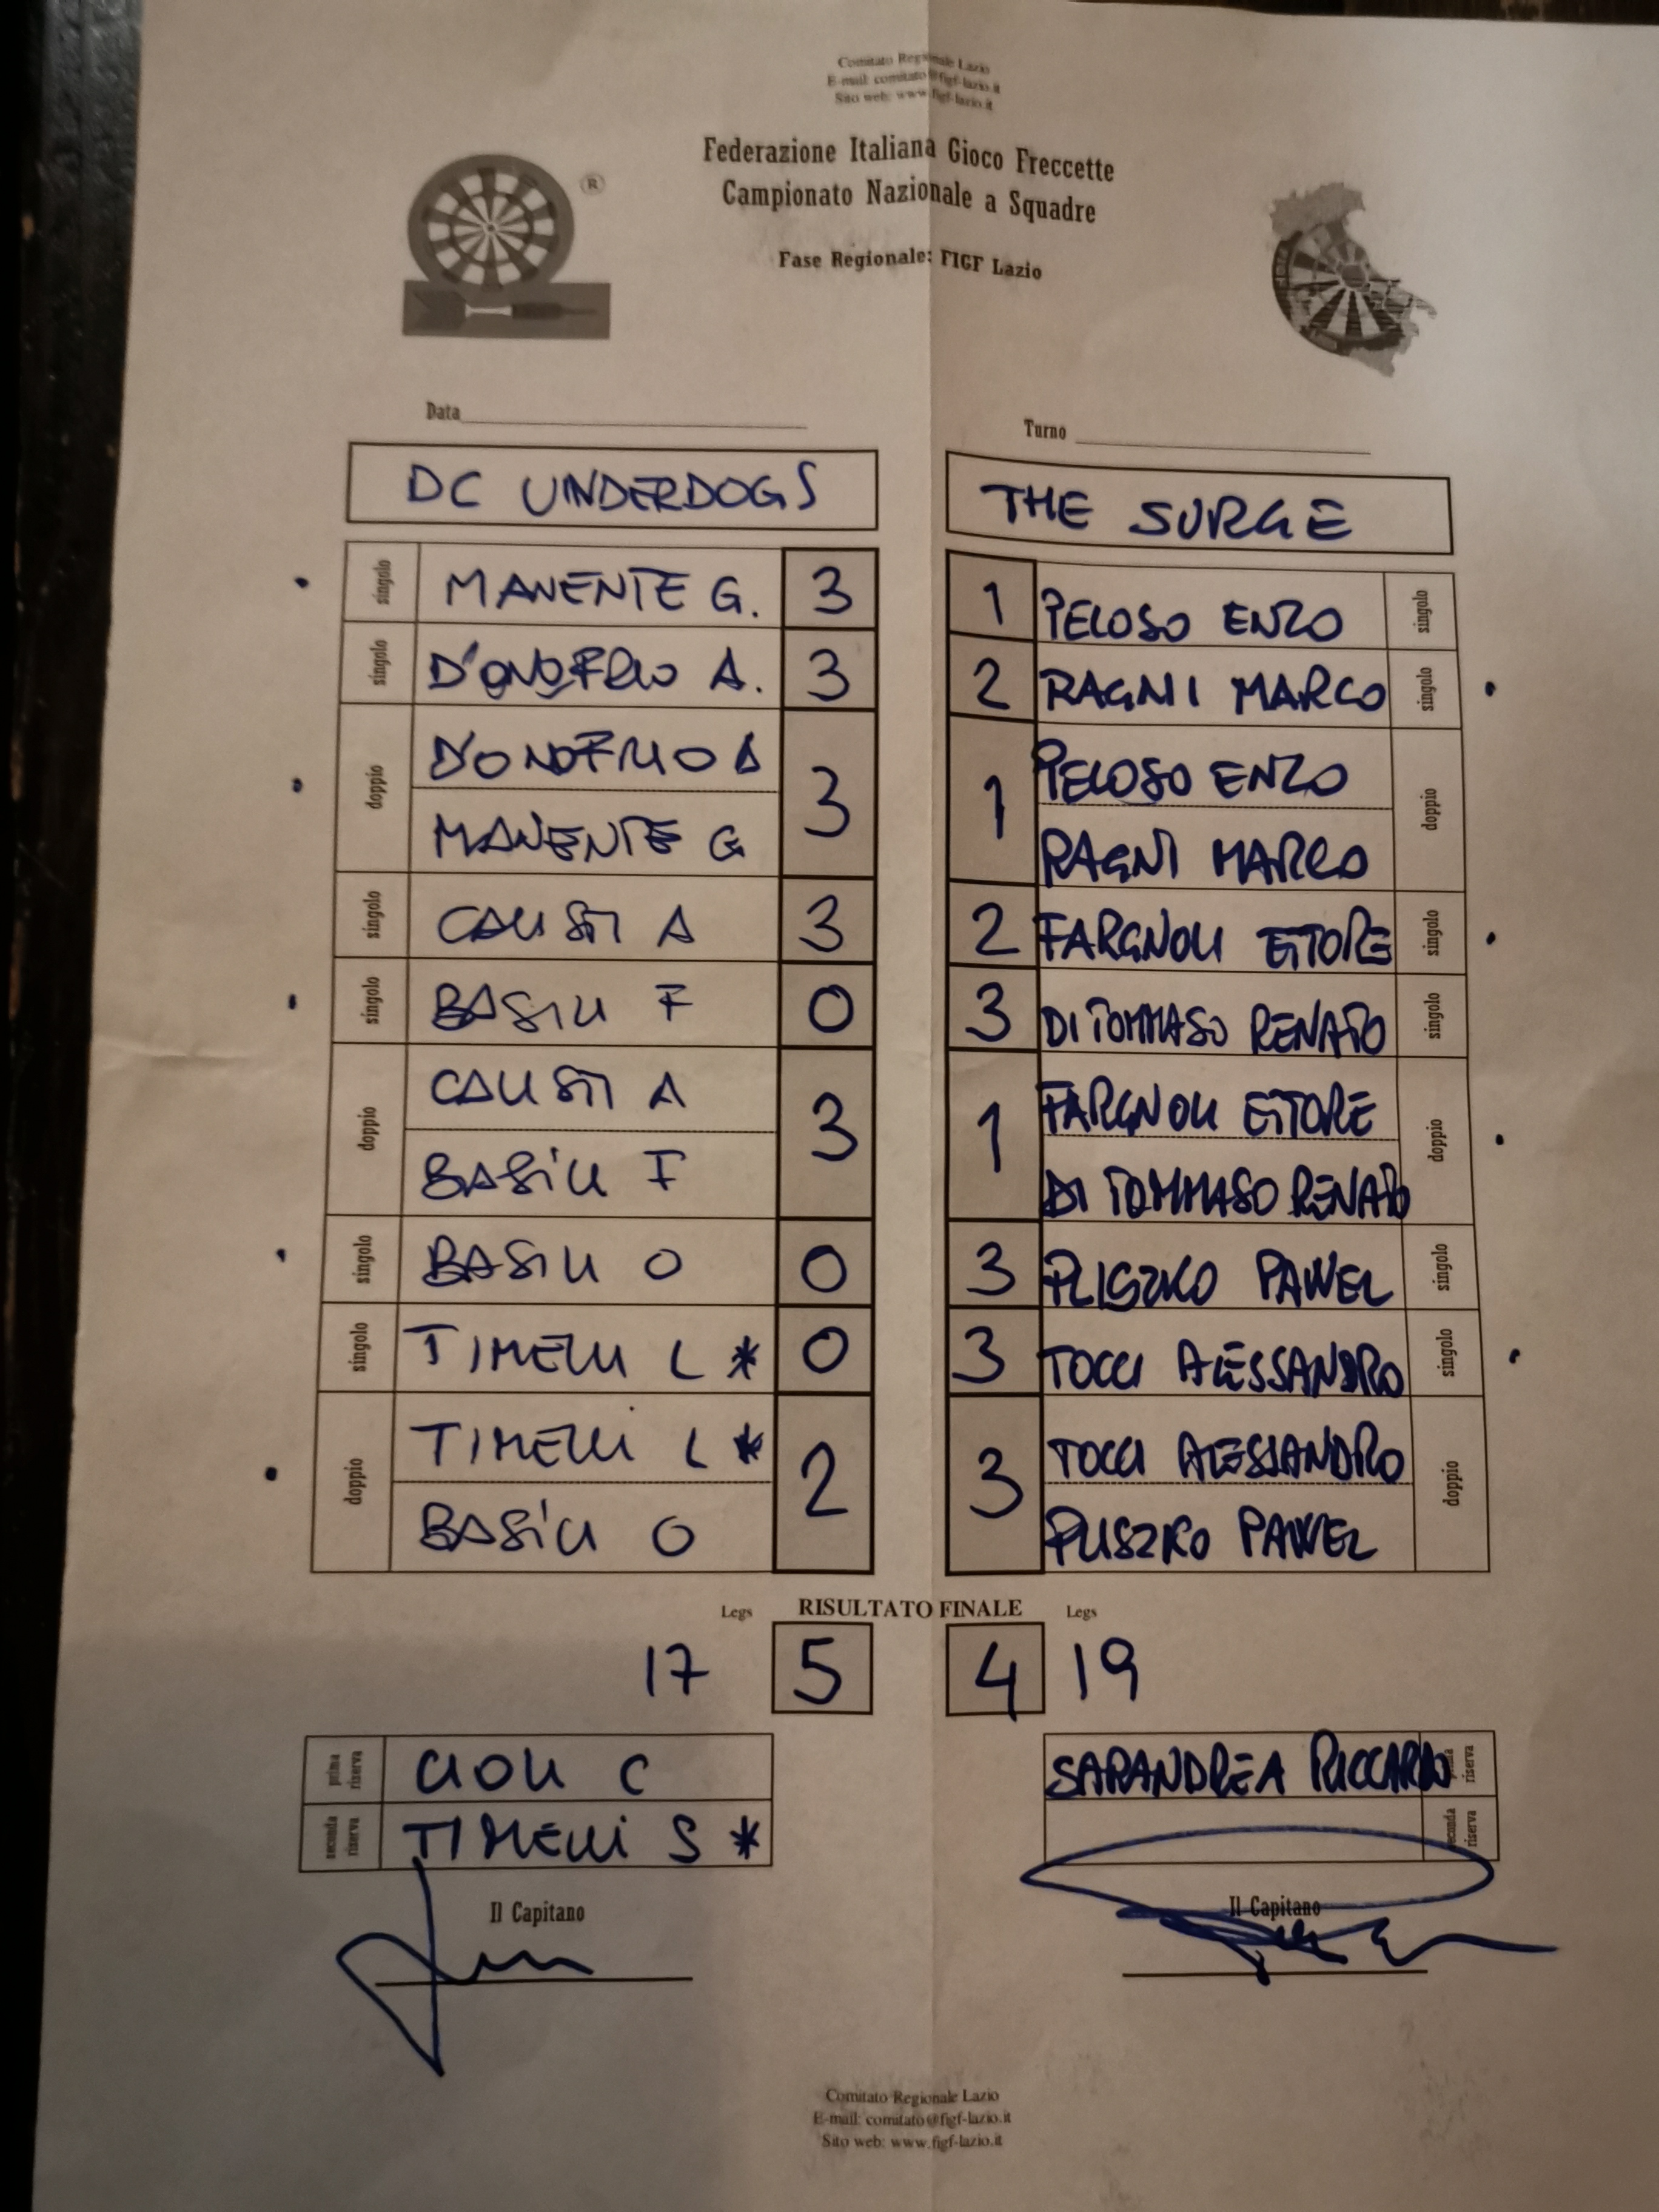 Comitato Regionale Lazio
E-mail: comitato@figf-lazio.it
Sito web: www.figf-lazio.it
Federazione Italiana Gioco Freccette
Campionato Nazionale a Squadre
Fase Regionale: FIGF Lazio
®
Data
Turno
DC UNDERDOGS
THE SURGE
singolo MANENTE G. 3
1 PELOSO ENZO singolo
singolo D'ONOFRIO A. 3
2 RAGNI MARCO singolo
doppio D'ONOFRIO A
MANENTE G 3
1 PELOSO ENZO
RAGNI MARCO doppio
singolo CALISTI A 3
2 FARGNOLI ETTORE singolo
singolo BASILI F 0
3 DI TOMMASO RENATO singolo
doppio CALISTI A
BASILI F 3
1 FARGNOLI ETTORE
DI TOMMASO RENATO doppio
singolo BASILI O 0
3 PLISZKO PAWEL singolo
singolo TIMELLI L * 0
3 TOCCI ALESSANDRO singolo
doppio TIMELLI L *
BASILI O 2
3 TOCCI ALESSANDRO
PLISZKO PAWEL doppio
Legs RISULTATO FINALE Legs
17 5 4 19
prima riserva CIOLI C
SARANDREA RICCARDO prima riserva
seconda riserva TIMELLI S *
seconda riserva
Il Capitano
Il Capitano
Comitato Regionale Lazio
E-mail: comitato@figf-lazio.it
Sito web: www.figf-lazio.it